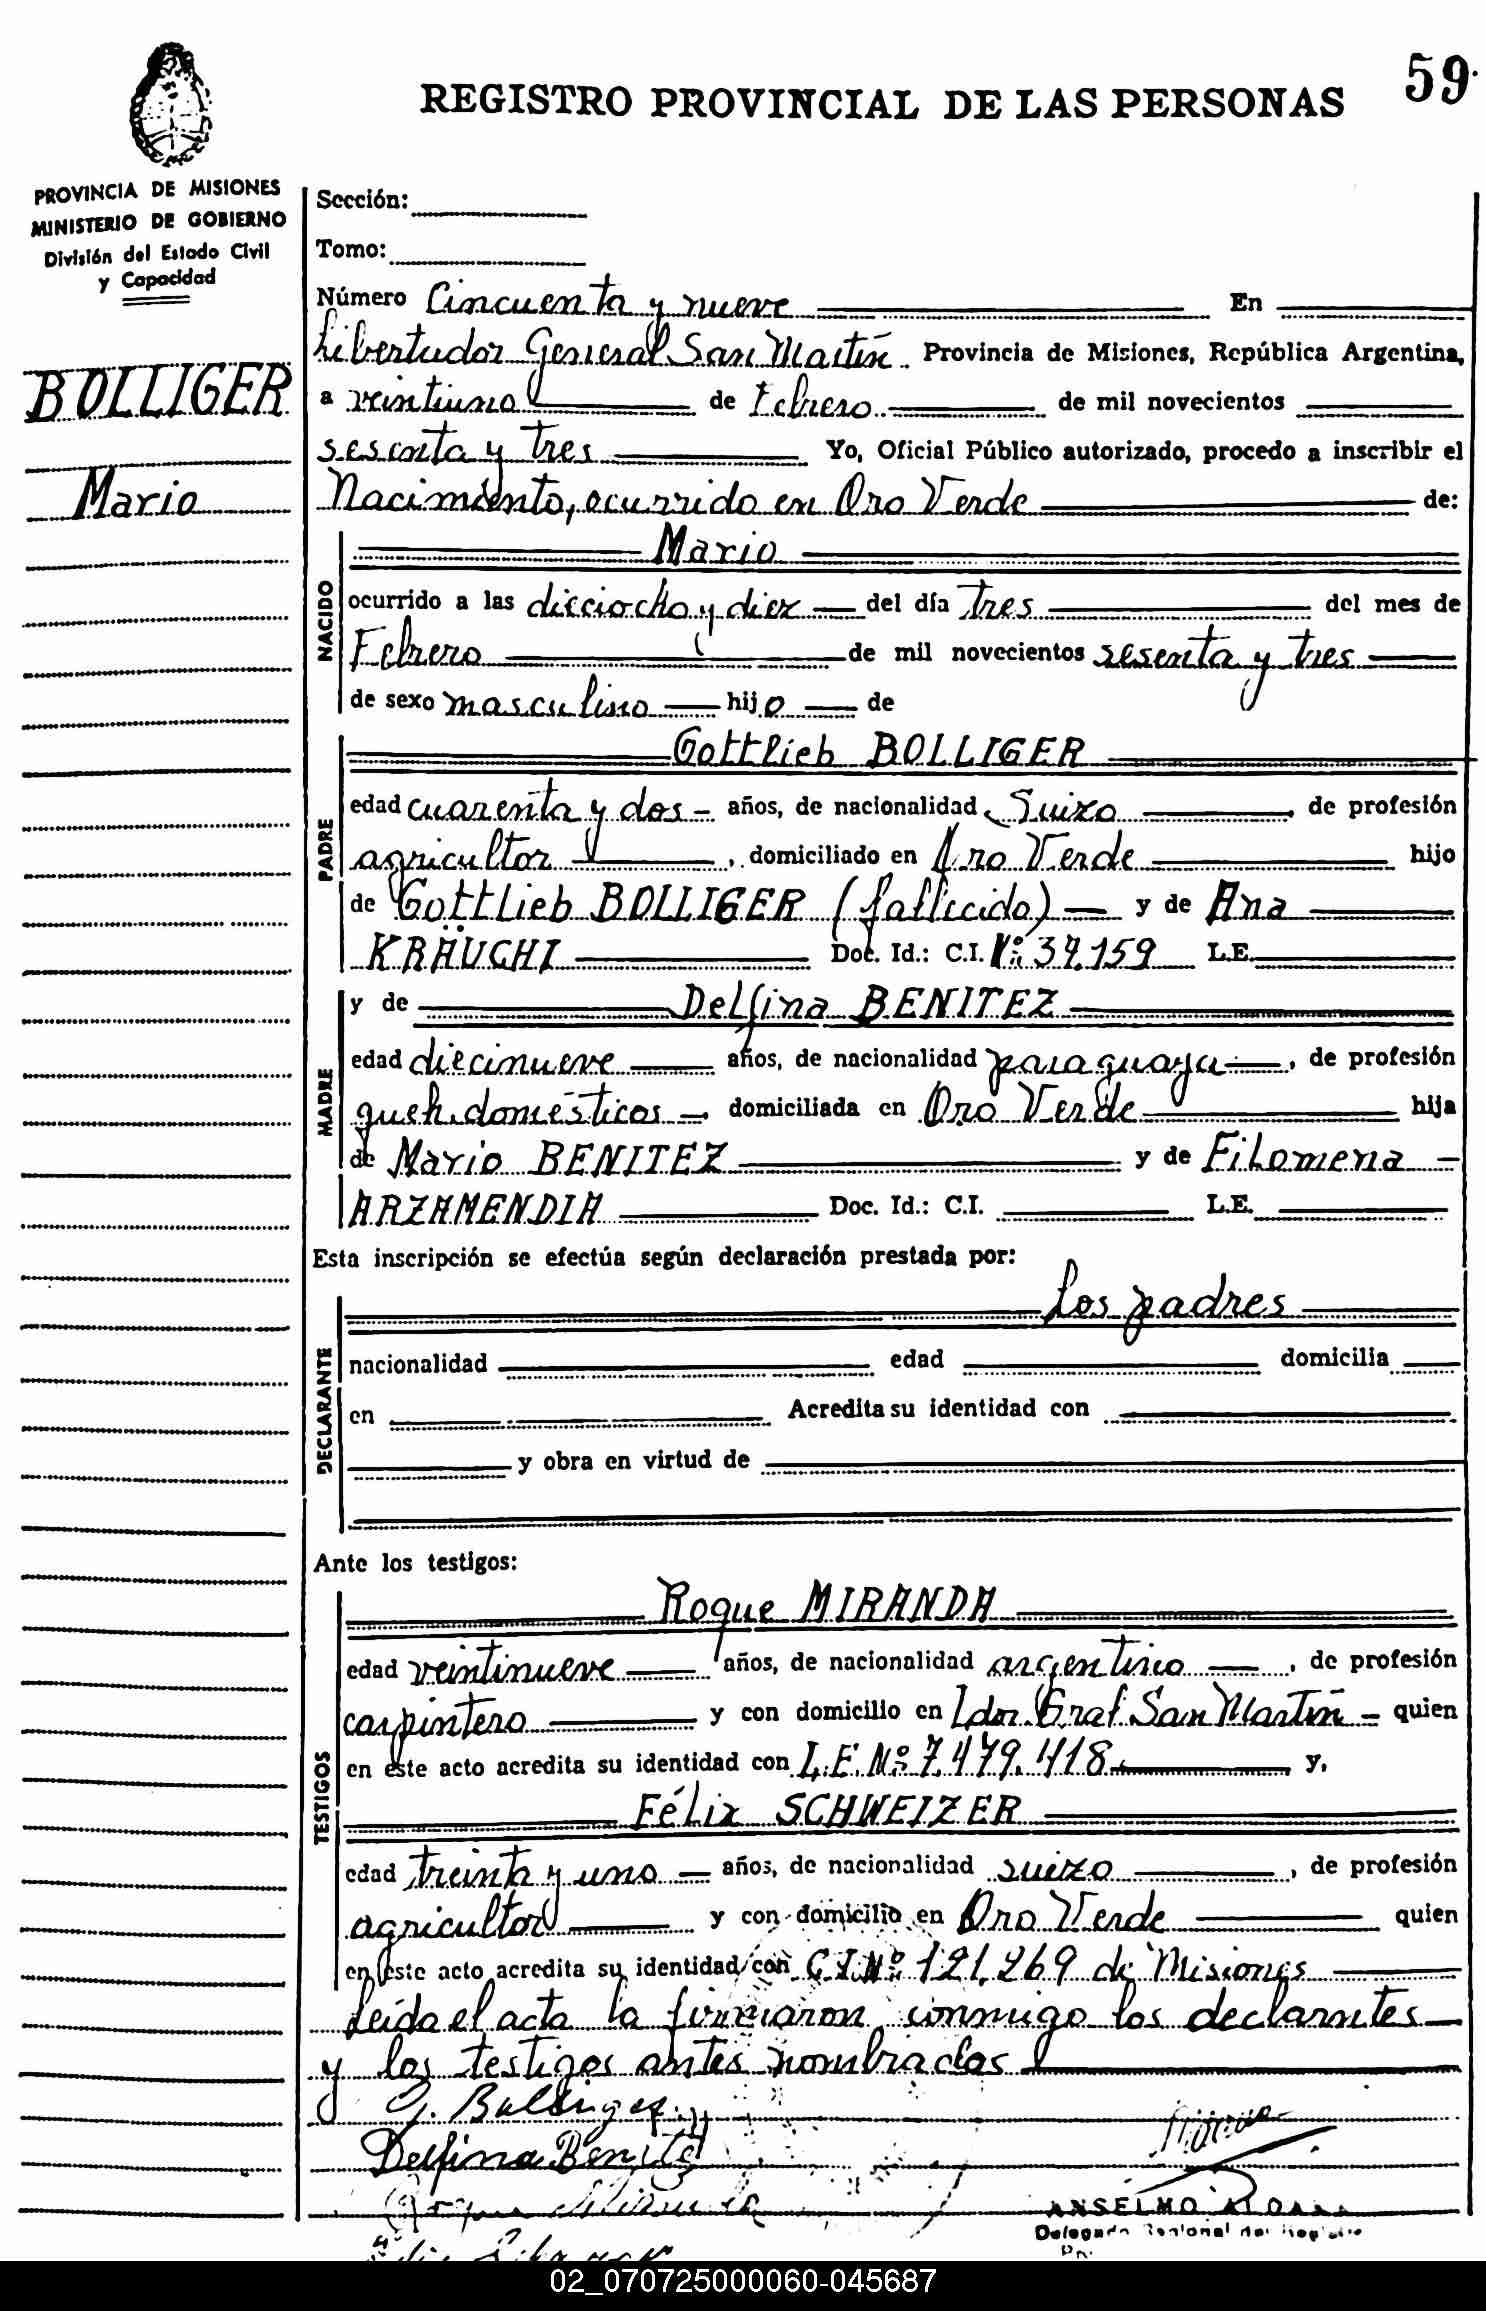 REGISTRO PROVINCIAL DE LAS PERSONAS
59
PROVINCIA DE MISIONES
MINISTERIO DE GOBIERNO
División del Estado Civil
y Capacidad
BOLLIGER
Mario
Sección:
Tomo:
Número Cincuenta y nueve En
Libertador General San Martín Provincia de Misiones, República Argentina,
a veintiuno de Febrero de mil novecientos
sesenta y tres Yo, Oficial Público autorizado, procedo a inscribir el
Nacimiento, ocurrido en Oro Verde de:
NACIDO
Mario
ocurrido a las dieciocho y diez del día tres del mes de
Febrero de mil novecientos sesenta y tres
de sexo masculino hijo de
PADRE
Gottlieb BOLLIGER
edad cuarenta y dos años, de nacionalidad Suizo, de profesión
agricultor, domiciliado en Oro Verde hijo
de Gottlieb BOLLIGER (fallecido) y de Ana
KRÄUCHI Doc. Id.: C.I. L.E.
MADRE
y de Delfina BENITEZ
edad diecinueve años, de nacionalidad paraguaya, de profesión
queh. domésticos, domiciliada en Oro Verde hija
de Mario BENITEZ y de Filomena
ARZAMENDIA Doc. Id.: C.I. L.E.
Esta inscripción se efectúa según declaración prestada por:
DECLARANTE
Los padres
nacionalidad edad domicilia
en Acredita su identidad con
y obra en virtud de
Ante los testigos:
TESTIGOS
Roque MIRANDA
edad veintinueve años, de nacionalidad argentino, de profesión
carpintero y con domicilio en Ldor. Gral San Martín quien
en este acto acredita su identidad con L.E. Nº 7.479.418 y,
Félix SCHWEIZER
edad treinta y uno años, de nacionalidad suizo, de profesión
agricultor y con domicilio en Oro Verde quien
en este acto acredita su identidad con C.I. Nº 121.269 de Misiones
Leída el acta la firmaron conmigo los declarantes
y los testigos antes nombrados
G. Bolliger
Delfina Benitez
ANSELMO
02_070725000060-045687